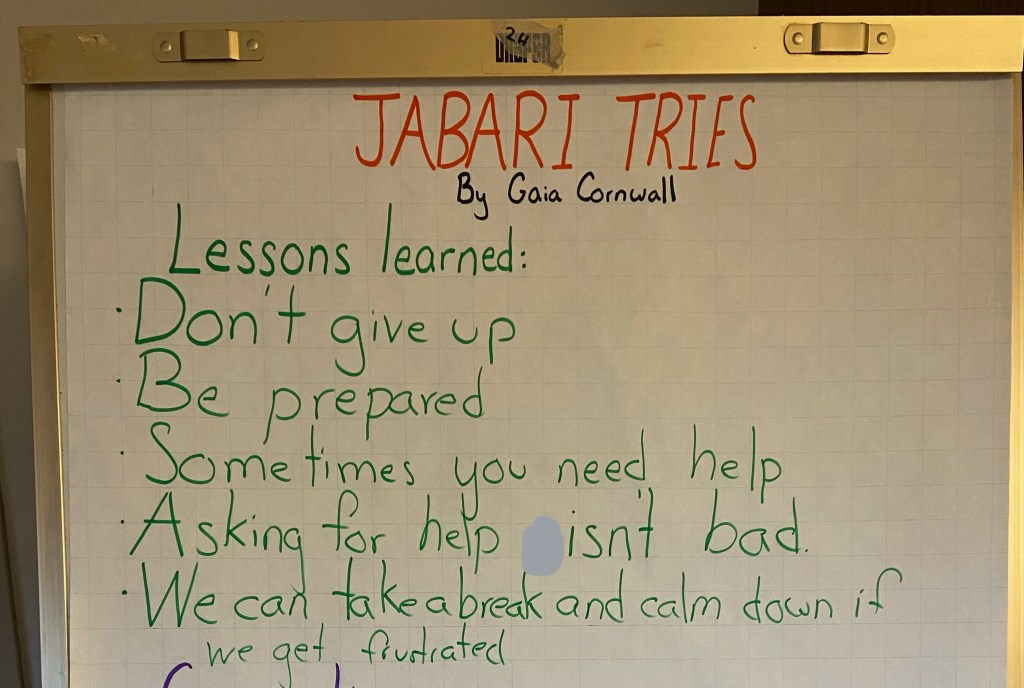 24
DRAPER
JABARI TRIES
By Gaia Cornwall
Lessons learned:
· Don't give up
· Be prepared
· Sometimes you need help
· Asking for help isn't bad.
· We can take a break and calm down if
we get frustrated